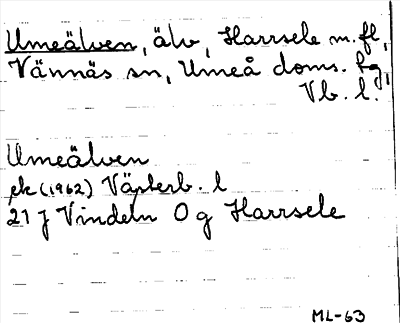 Umeälven, älv, Harrsele m. fl,
Vännäs sn, Umeå doms. fg,
Vb. l.
Umeälven
ek (1962) Västerb. l
21 J Vindeln O g Harrsele
ML-63